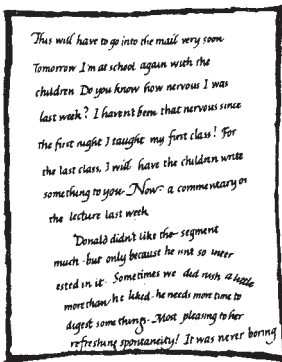 This will have to go into the mail very soon
Tomorrow I'm at school again with the
children Do you know how nervous I was
last week? I haven't been that nervous since
the first night I taught my first class! For
the last class, I will have the children write
something to you - Now - a commentary on
the lecture last week
Donald didn't like the segment
much - but only because he isn't so inter
ested in it - Sometimes we did rush a little
more than he liked - he needs more time to
digest some things - Most pleasing to her
refreshing spontaneity! It was never boring